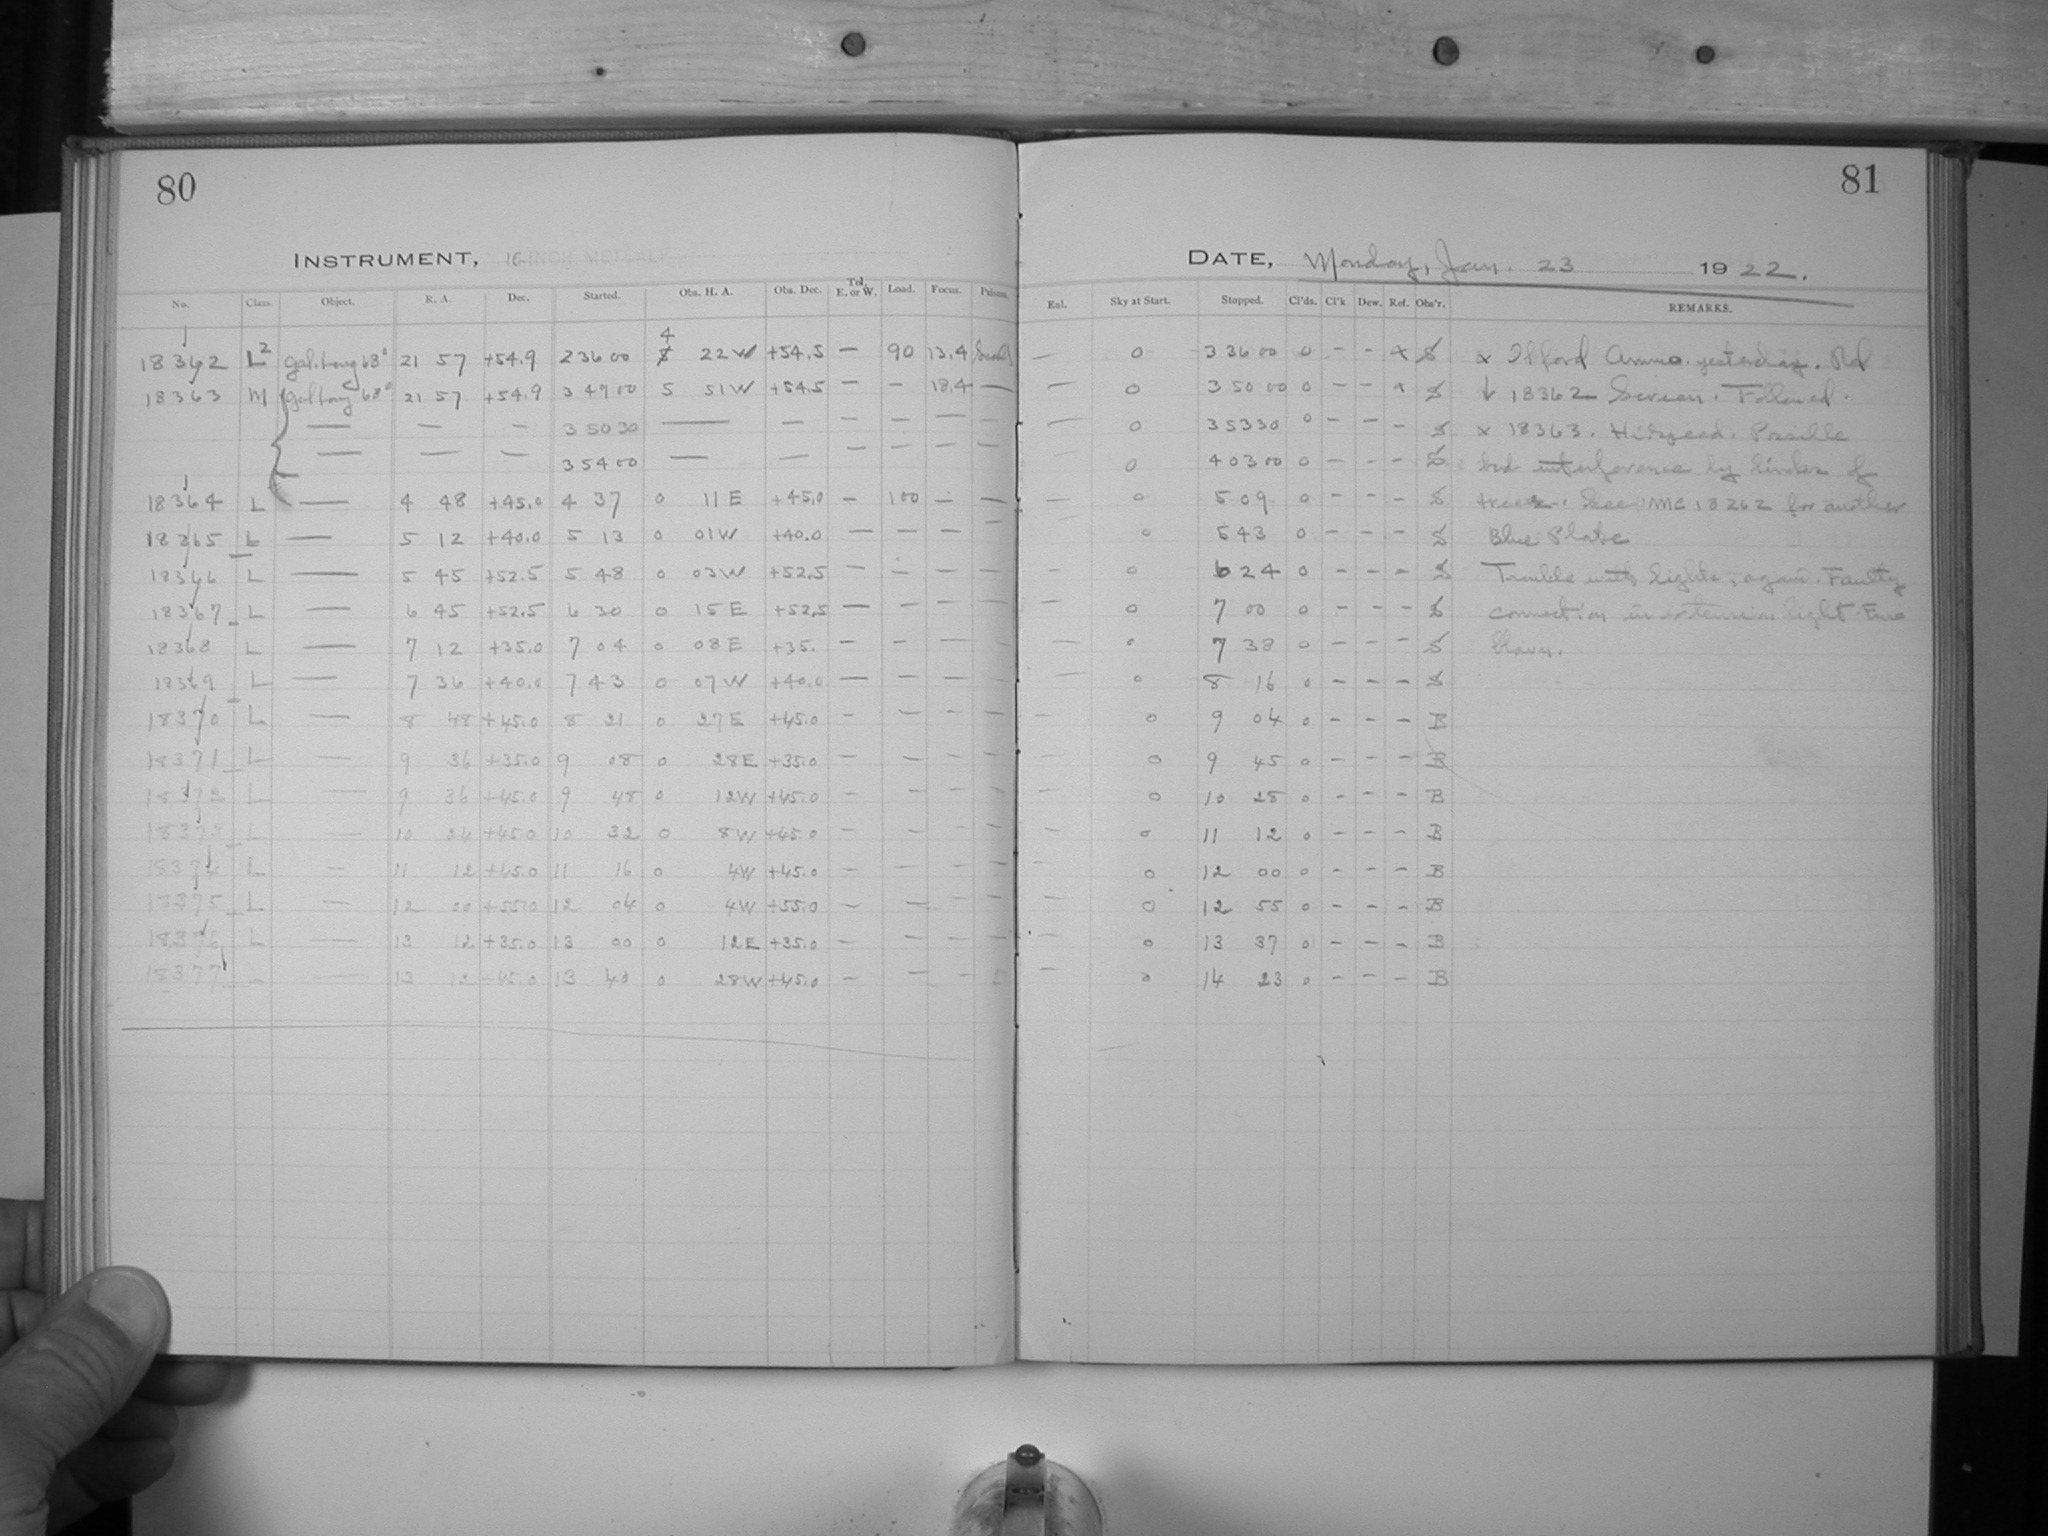 80
81
INSTRUMENT, 16-INCH METCALF
DATE, Monday, Jan. 23 1922.
No. Class. Object. R. A. Dec. Started. Obs. H. A. Obs. Dec. Tel. E. or W. Load. Focus. Prisms. Enl. Sky at Start. Stopped. Cl'ds. Cl'k Dew. Ref. Obs'r. REMARKS.
4
18362 L2 gal. long 68° 21 57 +54.9 2 36 00 5 22W +54.5 — 90 13.4 — 0 3 36 00 0 - - x S x Ilford Ammo. yesterday. Red
18363 M gal long 68° 21 57 +54.9 3 49 00 5 51W +54.5 — — 18.4 — — 0 3 50 00 0 - - x S 18362 Screen. Followed.
— — — 3 50 30 — — — — — — — 0 3 53 30 0 - - - S x 18363. Possible
— — — 3 54 00 — — — — — — 0 4 03 00 0 - - - S bad interference by limbs of
18364 L — 4 48 +45.0 4 37 0 11E +45.0 — 100 — — — 0 5 09 0 - - - S trees. See MC 18262 for another
18365 L — 5 12 +40.0 5 13 0 01W +40.0 — — — — 0 5 43 0 - - - S Blue Plate
18366 L — 5 45 +52.5 5 48 0 03W +52.5 — — — — — 0 6 24 0 - - - S Trouble with lights, again. Faulty
18367 L — 6 45 +52.5 6 30 0 15E +52.5 — — — — — 0 7 00 0 - - - S connection in extension light.
18368 L — 7 12 +35.0 7 04 0 08E +35. — — — — — 0 7 38 0 - - - S blown.
18369 L — 7 36 +40.0 7 43 0 07W +40.0 — — — — — 0 8 16 0 - - - S
18370 L — 8 48 +45.0 8 21 0 27E +45.0 — — — — — 0 9 04 0 - - - B
18371 L — 9 36 +35.0 9 08 0 28E +35.0 — — — — — 0 9 45 0 - - - B
18372 L — 9 36 +45.0 9 48 0 12W +45.0 — — — — — 0 10 28 0 - - - B
18373 L — 10 24 +45.0 10 32 0 8W +45.0 — — — — — 0 11 12 0 - - - B
18374 L — 11 12 +45.0 11 16 0 4W +45.0 — — — — — 0 12 00 0 - - - B
18375 L — 12 00 +55.0 12 04 0 4W +55.0 — — — — — 0 12 55 0 - - - B
18376 L — 13 12 +35.0 13 00 0 12E +35.0 — — — — — 0 13 37 0 - - - B
18377 — — 13 12 +45.0 13 40 0 28W +45.0 — — — — 0 14 23 0 - - - B